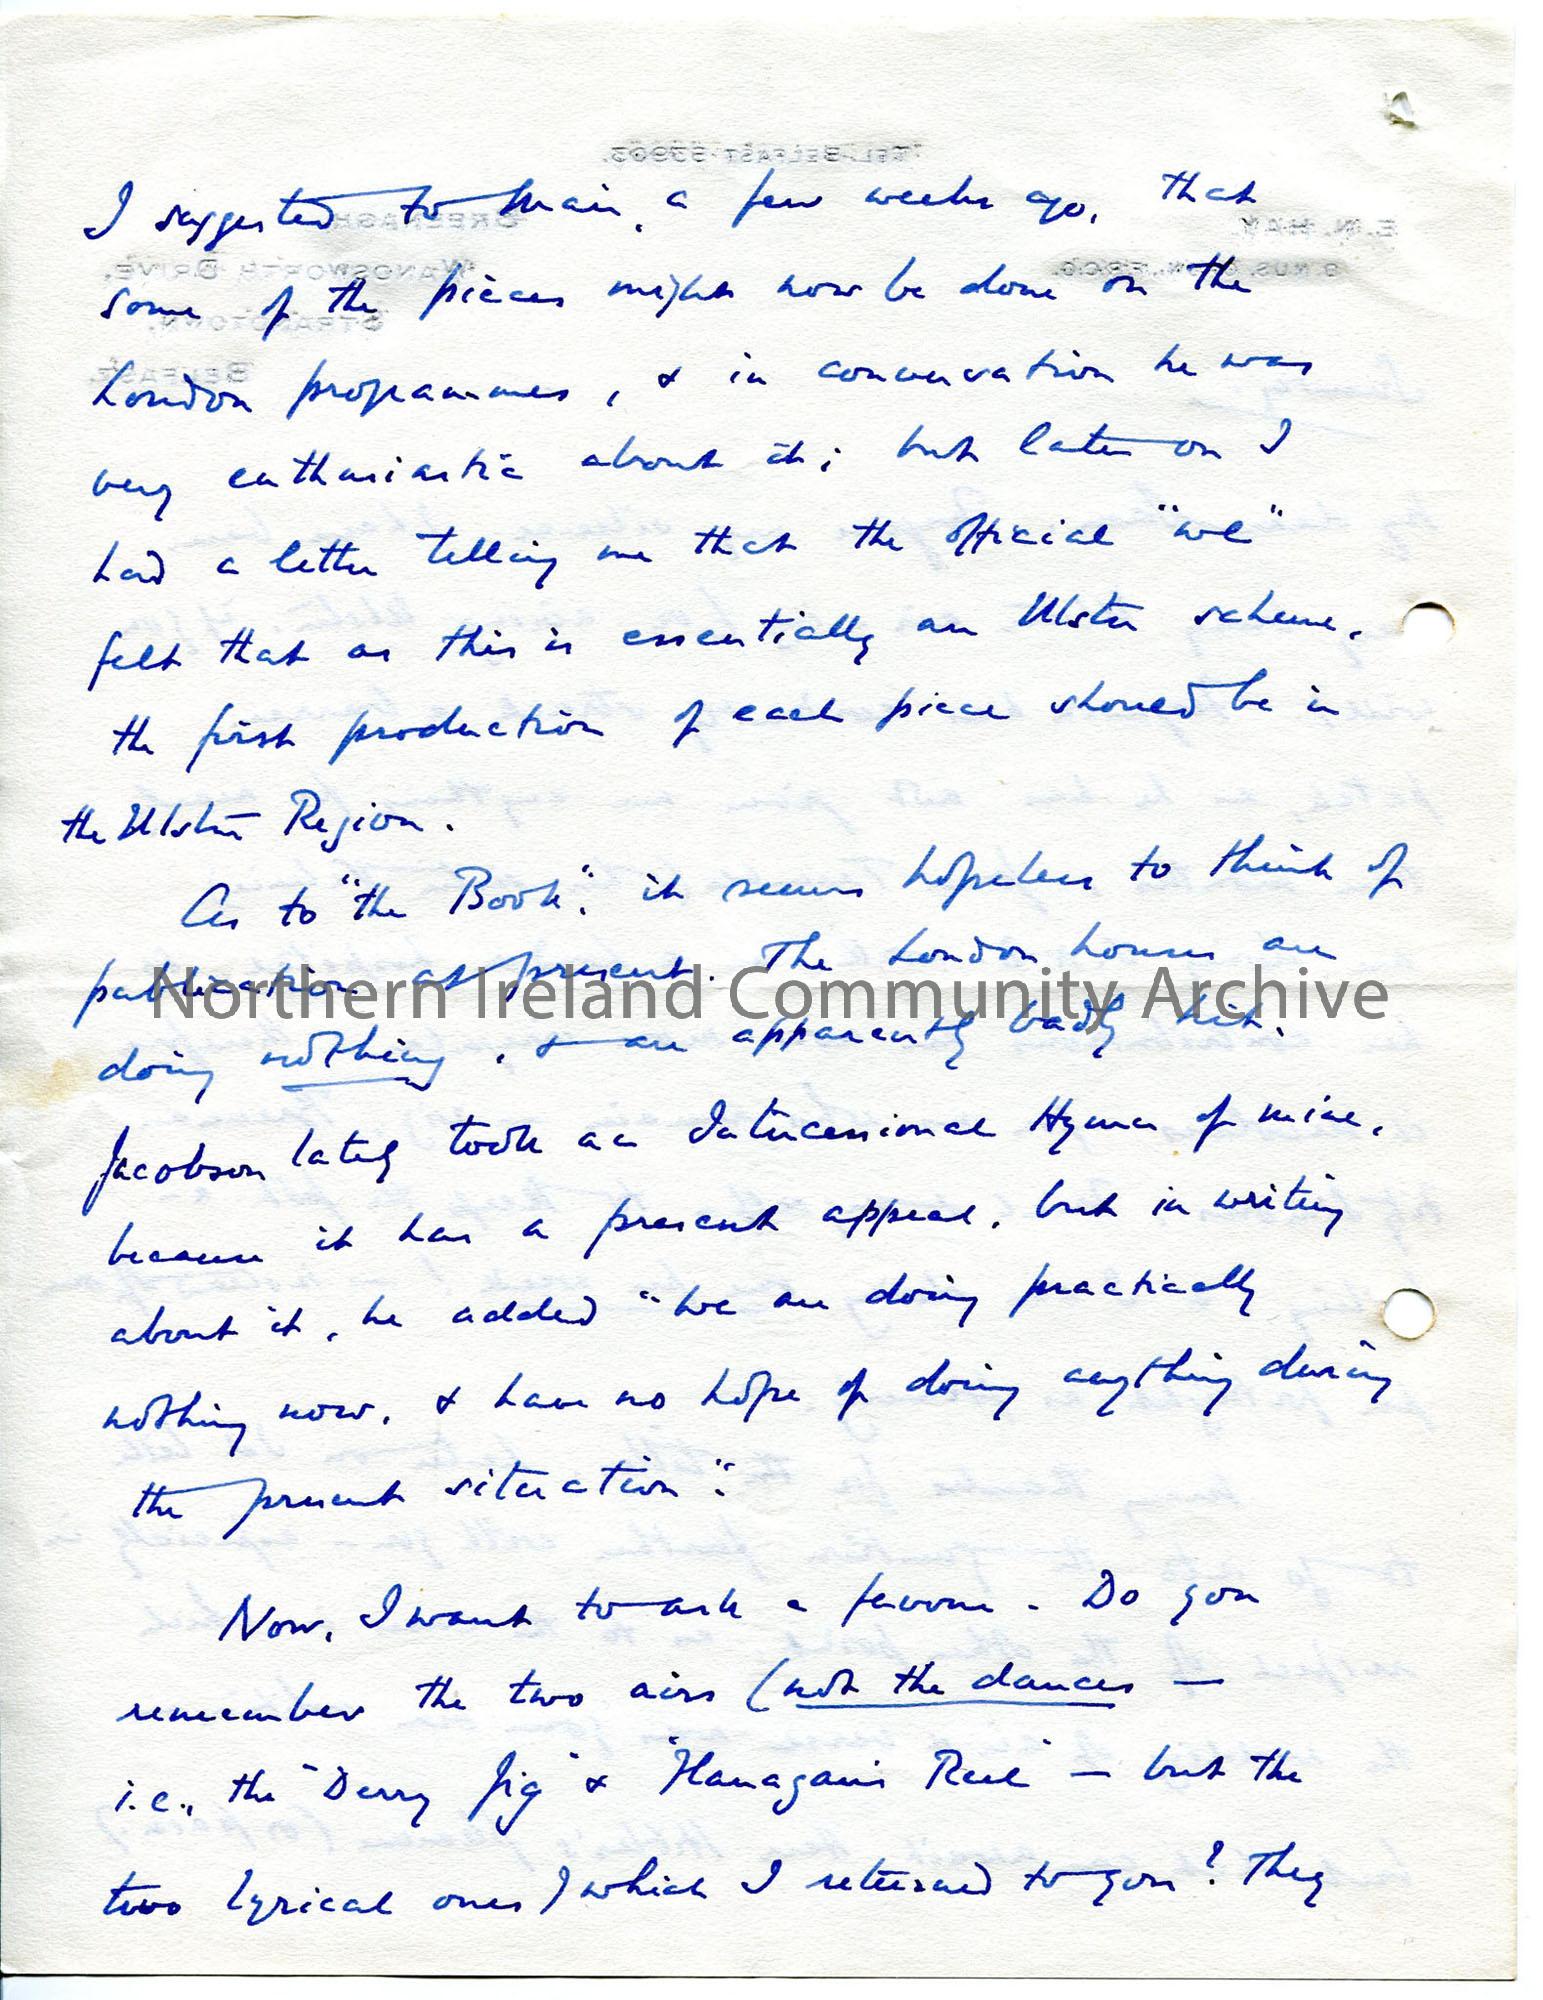 I suggested to Mair, a few weeks ago, that
some of the pieces might now be done on the
London programmes, & in conversation he was
very enthusiastic about it; but later on I
had a letter telling me that the official "we"
felt that as this is essentially an Ulster scheme,
the first production of each piece should be in
the Ulster Region.
As to "the Book", it seems hopeless to think of
publication at present. The London houses are
Northern Ireland Community Archive
doing nothing, & are apparently badly hit.
Jacobson lately took an Intercessional Hymn of mine,
because it has a present appeal, but in writing
about it, he added "We are doing practically
nothing now, & have no hope of doing anything during
the present situation".
Now, I want to ask a favour. Do you
remember the two airs (not the dances —
i.e., the "Derry Jig" & "Flanagan's Reel" — but the
two lyrical ones) which I returned to you? They